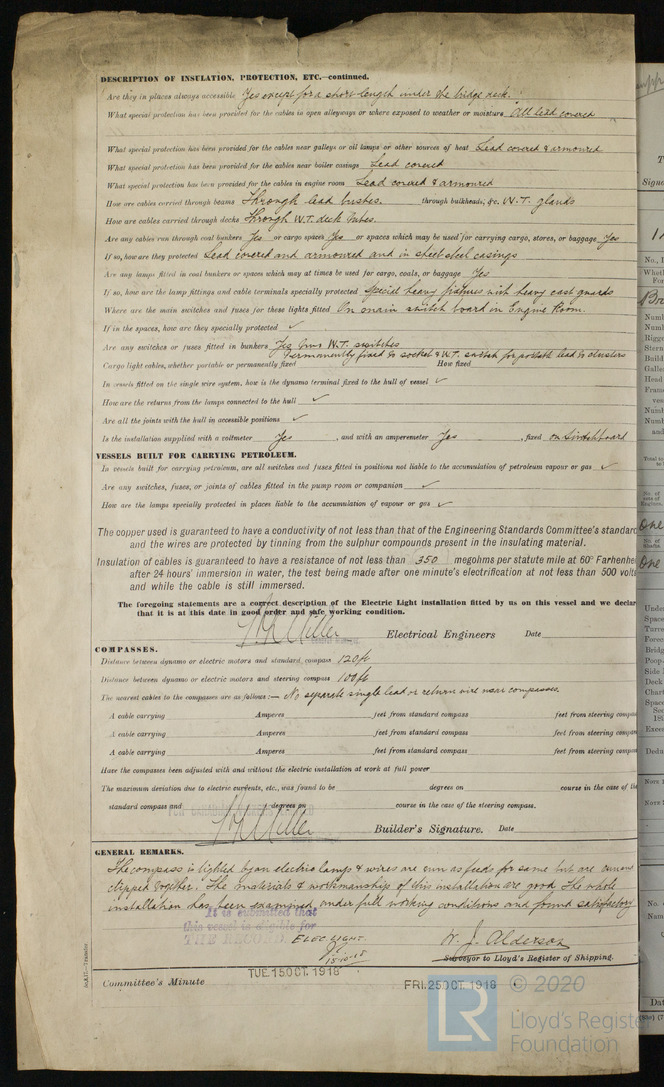 DESCRIPTION OF INSULATION, PROTECTION, ETC.—continued.
Are they in places always accessible Yes except for a short length under the bridge deck.
What special protection has been provided for the cables in open alleyways or where exposed to weather or moisture All lead covered
What special protection has been provided for the cables near galleys or oil lamps or other sources of heat Lead covered & armoured
What special protection has been provided for the cables near boiler casings Lead covered
What special protection has been provided for the cables in engine room Lead covered & armoured
How are cables carried through beams Through lead bushes. through bulkheads, &c. W.T. glands
How are cables carried through decks Through W.T. deck tubes.
Are any cables run through coal bunkers Yes or cargo spaces Yes or spaces which may be used for carrying cargo, stores, or baggage Yes
If so, how are they protected Lead covered and armoured and in sheet steel casings
Are any lamps fitted in coal bunkers or spaces which may at times be used for cargo, coals, or baggage Yes
If so, how are the lamp fittings and cable terminals specially protected Special heavy fixtures with heavy cast guards
Where are the main switches and fuses for these lights fitted On main switch board in Engine Room.
If in the spaces, how are they specially protected ✓
Are any switches or fuses fitted in bunkers Yes W.T. switches
Cargo light cables, whether portable or permanently fixed Permanently fixed to socket & W.T. switch for portable lead to clusters How fixed
In vessels fitted on the single wire system, how is the dynamo terminal fixed to the hull of vessel ✓
How are the returns from the lamps connected to the hull ✓
Are all the joints with the hull in accessible positions ✓
Is the installation supplied with a voltmeter Yes , and with an amperemeter Yes , fixed on Switchboard
VESSELS BUILT FOR CARRYING PETROLEUM.
In vessels built for carrying petroleum, are all switches and fuses fitted in positions not liable to the accumulation of petroleum vapour or gas ✓
Are any switches, fuses, or joints of cables fitted in the pump room or companion ✓
How are the lamps specially protected in places liable to the accumulation of vapour or gas ✓
The copper used is guaranteed to have a conductivity of not less than that of the Engineering Standards Committee's standard
and the wires are protected by tinning from the sulphur compounds present in the insulating material.
Insulation of cables is guaranteed to have a resistance of not less than 350 megohms per statute mile at 60° Farhenhe
after 24 hours' immersion in water, the test being made after one minute's electrification at not less than 500 volts
and while the cable is still immersed.
The foregoing statements are a correct description of the Electric Light installation fitted by us on this vessel and we declar
that it is at this date in good order and safe working condition.
Miller Electrical Engineers Date
COMPASSES.
Distance between dynamo or electric motors and standard compass 120 ft
Distance between dynamo or electric motors and steering compass 100 ft
The nearest cables to the compasses are as follows:— No separate single lead or return wire near compasses.
A cable carrying Amperes feet from standard compass feet from steering compa
A cable carrying Amperes feet from standard compass feet from steering compa
A cable carrying Amperes feet from standard compass feet from steering compa
Have the compasses been adjusted with and without the electric installation at work at full power
The maximum deviation due to electric currents, etc., was found to be degrees on course in the case of the
standard compass and degrees on course in the case of the steering compass.
Miller Builder's Signature. Date
GENERAL REMARKS.
The compass is lighted by an electric lamp & wires are run as feeds for same but are
clipped together. The materials & workmanship of this installation are good The whole
installation has been examined under full working conditions and found satisfactory
It is submitted that
this vessel is eligible for
THE RECORD. ELEC. LIGHT.
15-10-18
W. J. Alderson
Surveyor to Lloyd's Register of Shipping.
Committee's Minute
TUE. 15 OCT. 1918
FRI. 25 OCT. 1918
© 2020
LR
Lloyd's Register
Foundation